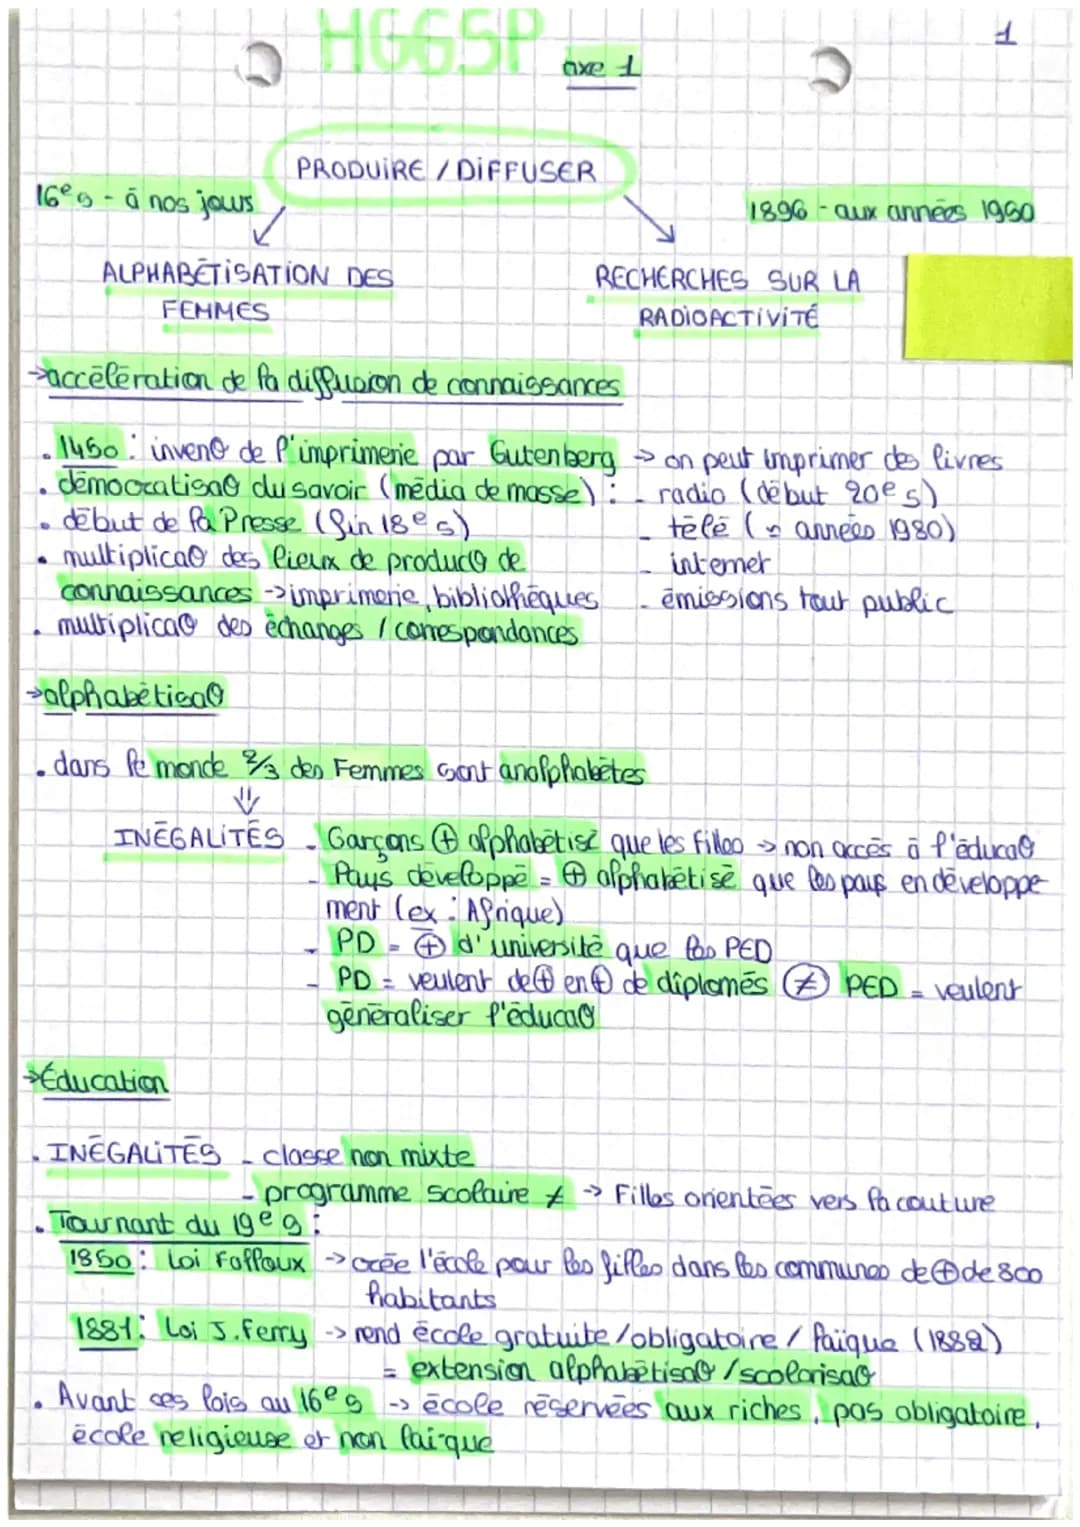 HGGSP
axe 1
1
PRODUIRE / DIFFUSER
16e s - à nos jours
1896 - aux années 1950
ALPHABÉTISATION DES
FEMMES
RECHERCHES SUR LA
RADIOACTIVITÉ
→accélération de la diffusion de connaissances
. 1450 : invenꝋ de l'imprimerie par Gutenberg → on peut imprimer des livres
. démocratisaꝋ du savoir (média de masse) : - radio (début 20e s)
. début de la Presse (fin 18e s)
- télé (≈ années 1980)
. multiplicaꝋ des lieux de producꝋ de
- internet
connaissances -> imprimerie, bibliothèques
- émissions tout public
. multiplicaꝋ des échanges / correspondances
→alphabétisaꝋ
. dans le monde 2/3 des Femmes sont analphabètes
⇓
INÉGALITÉS - Garçons ⊕ alphabétisé que les filles -> non accès à l'éducaꝋ
- Pays développé = ⊕ alphabétisé que les pays en développe
ment (ex : Afrique)
- PD = ⊕ d'université que les PED
- PD = veulent de ⊕ en ⊕ de diplomés ≠ PED = veulent
généraliser l'éducaꝋ
→Éducation
. INÉGALITÉS - classe non mixte
- programme scolaire ≠ -> Filles orientées vers la couture
. Tournant du 19e s :
1850 : Loi Falloux -> crée l'école pour les filles dans les communes de ⊕ de 800
habitants
1881 : Loi J. Ferry -> rend école gratuite / obligatoire / laïque (1882)
= extension alphabétisaꝋ / scolarisaꝋ
. Avant ces lois au 16e s -> école réservées aux riches, pas obligatoire,
école religieuse et non laïque